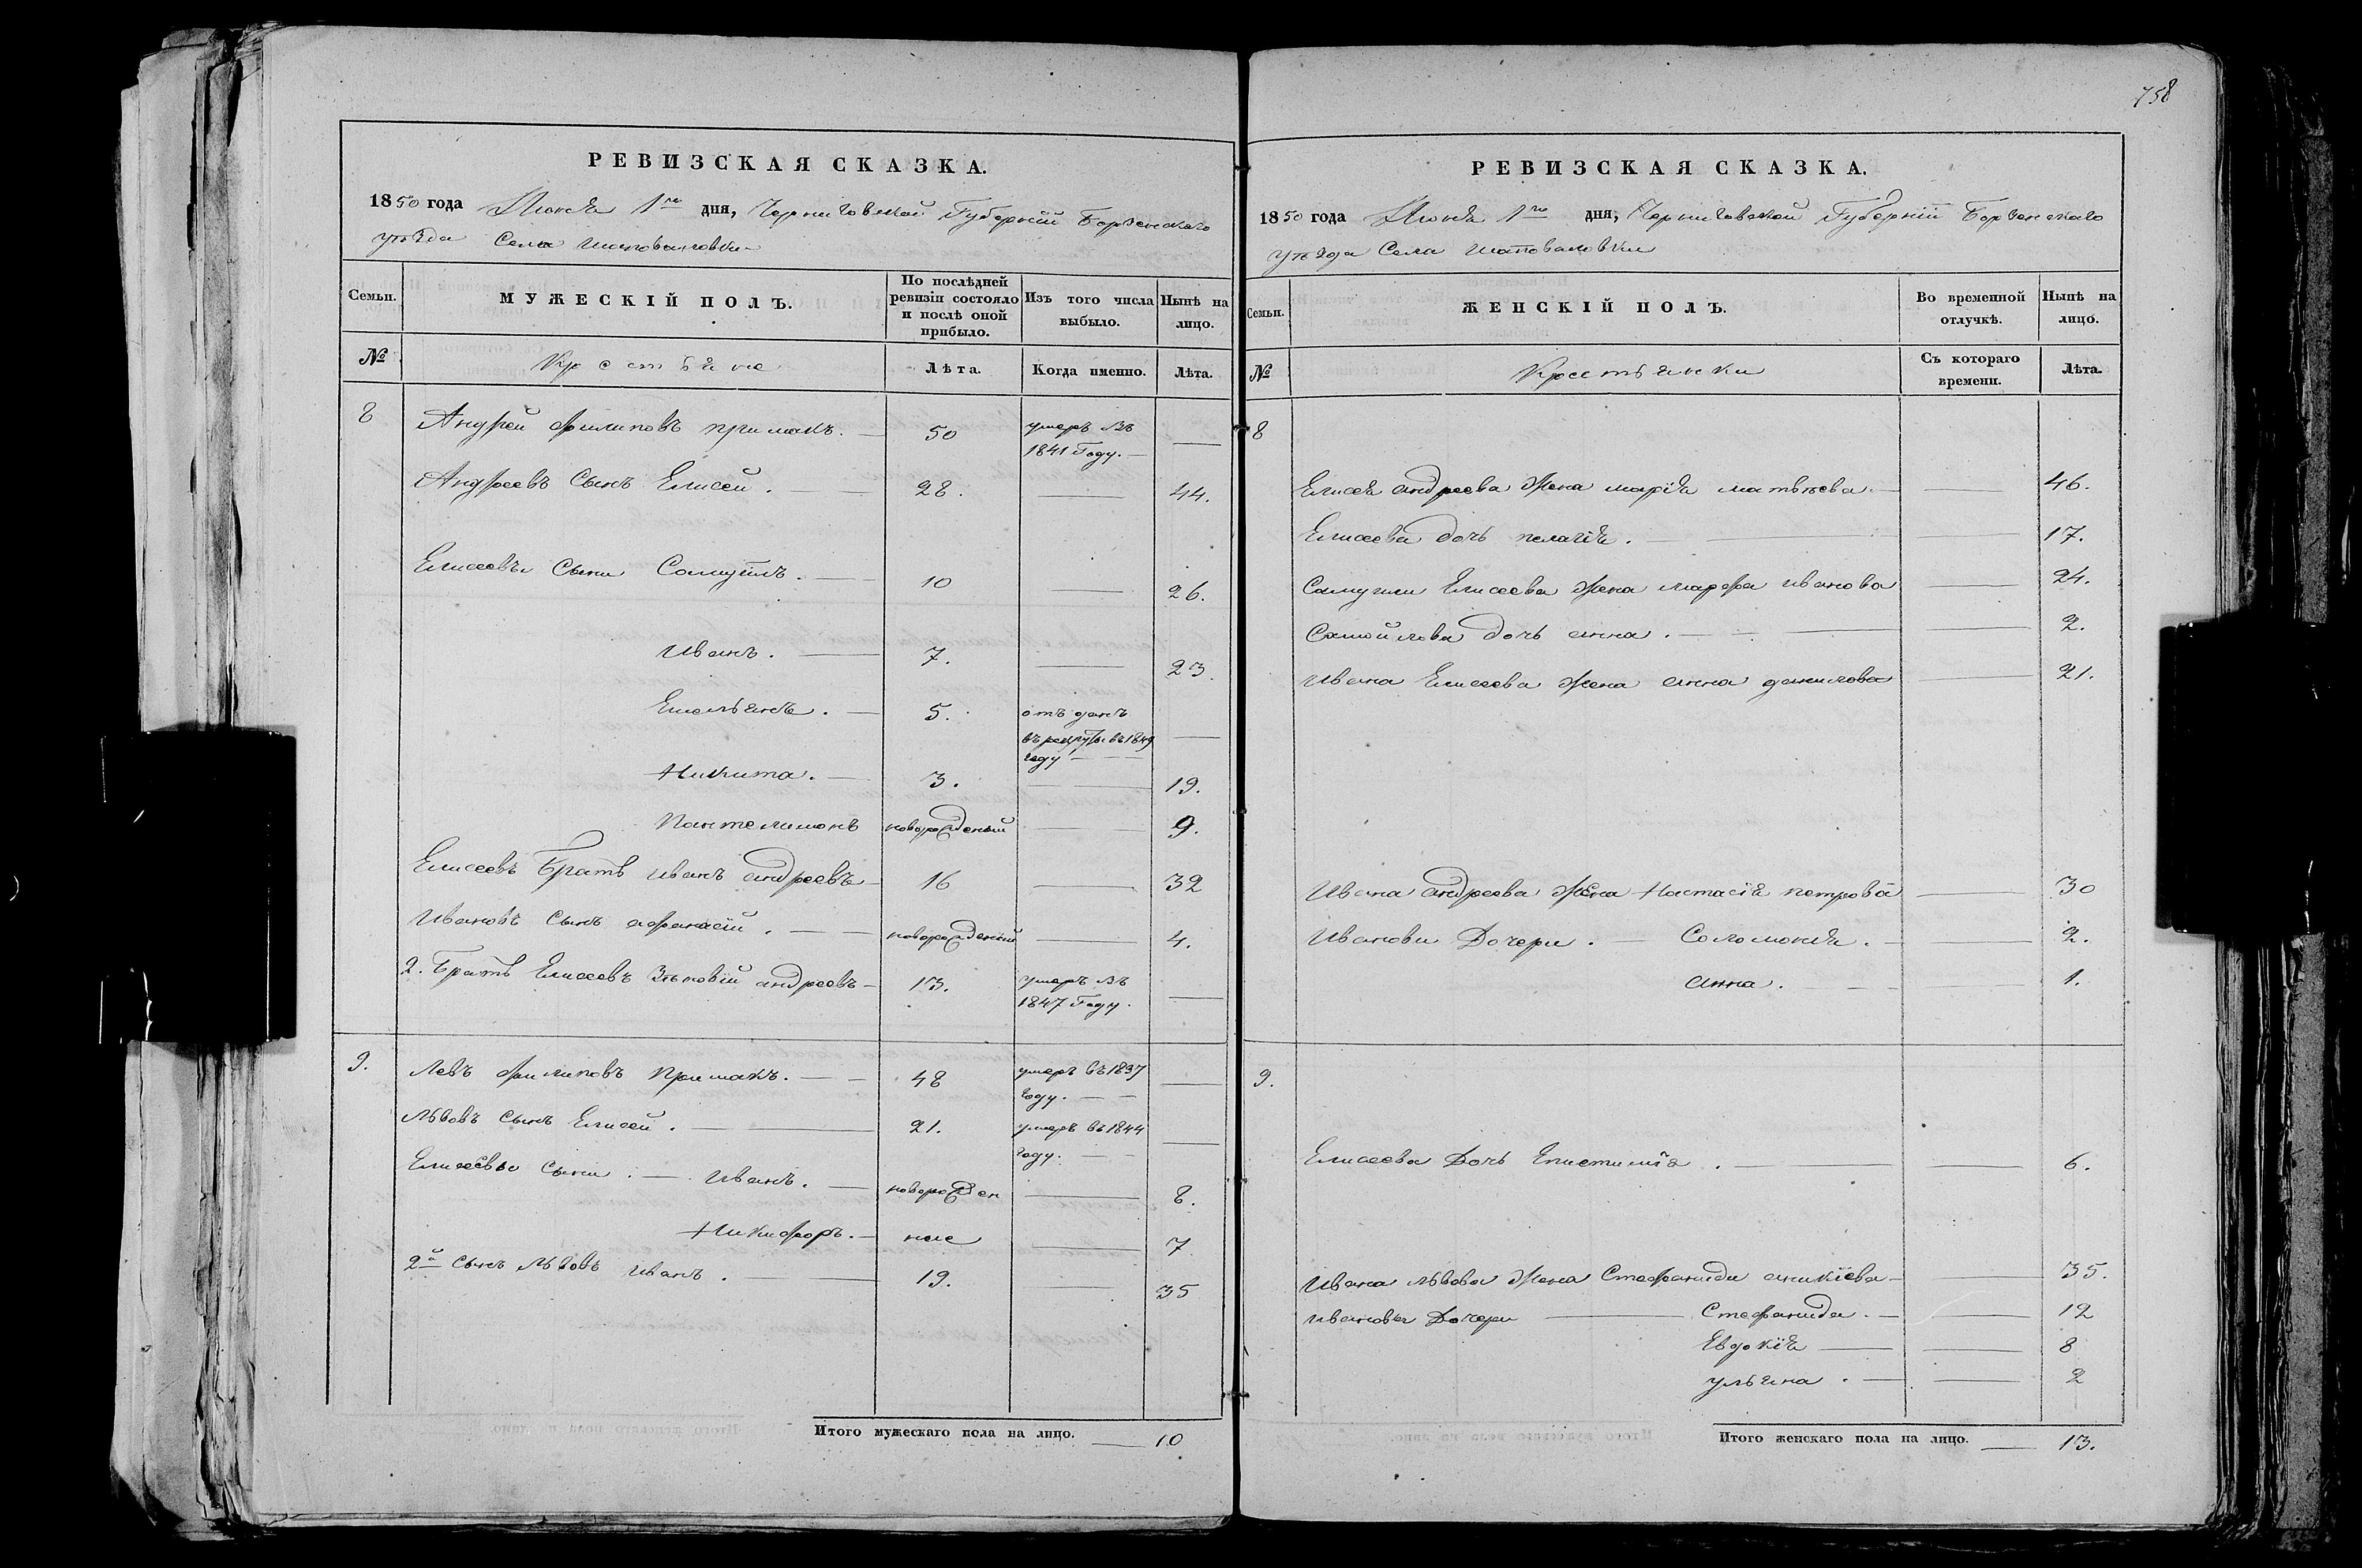 758
РЕВИЗСКАЯ СКАЗКА.
1850 года Июня 1го дня, Черниговской Губерніи Борзенскаго
уѣзда Села шаповаловки
Семьи. МУЖЕСКІЙ ПОЛЪ. По послѣдней ревизіи состояло и послѣ оной прибыло. Изъ того числа выбыло. Нынѣ на лицо.
№ Крестьяне Лѣта. Когда именно. Лѣта.
8 Андрей Филиповъ примакъ. — 50 умеръ въ —
1841 Году. —
Андреевъ Сынъ Елисей. — 28. — 44.
Елисеевы Сыни Самуилъ. — 10 — 26.
Иванъ. — 7. — 23.
Емельянъ. — 5. отъ данъ
въ рекруты въ 1849 —
году — —
Никита. — 3. — 19.
Пантелимонъ новорожденый — 9.
Елисеевъ Братъ иванъ андреевъ — 16 — 32
Ивановъ Сынъ афанасій. — новорожденый — 4.
2. Братъ Елисеевъ Зѣновій андреевъ — 13. умеръ въ
1847 Году. —
9. Левъ Филиповъ Примакъ. — 48 умеръ въ 1837 —
году. — —
Львовъ Сынъ Елисей. — 21. умеръ въ 1844 —
году. — —
Елисеевы Сыни. — Иванъ. — новорожден — 8.
Никифоръ. — ные — 7.
2й Сынъ Львовъ Иванъ. — 19. — 35
Итого мужескаго пола на лицо. — 10
РЕВИЗСКАЯ СКАЗКА.
1850 года Июня 1го дня, Черниговской Губерніи Борзенскаго
уѣзда Села шаповаловки
Семьи. ЖЕНСКІЙ ПОЛЪ. Во временной отлучкѣ. Нынѣ на лицо.
№ Крестьянки Съ котораго времени. Лѣта.
8
Елисея андреева Жена марія матвѣева. — 46.
Елисеева дочь пелагія. — 17.
Самуили Елисеева жена марфа иванова — 24.
Самойлова дочь анна. — 2.
Ивана Елисеева жена анна данилова — 21.
Ивана андреева Жена Настасія петрова — 30
Иванови Дочери. — Соломонія. — 2.
анна. — 1.
9.
Елисеева Дочь Епистимія. — 6.
Ивана львова Жена Стефанида аникіева — 35.
ивановы Дочери — Стефанида. — 12
Евдокія — 8
ульяна. — 2
Итого женскаго пола на лицо. — 13.